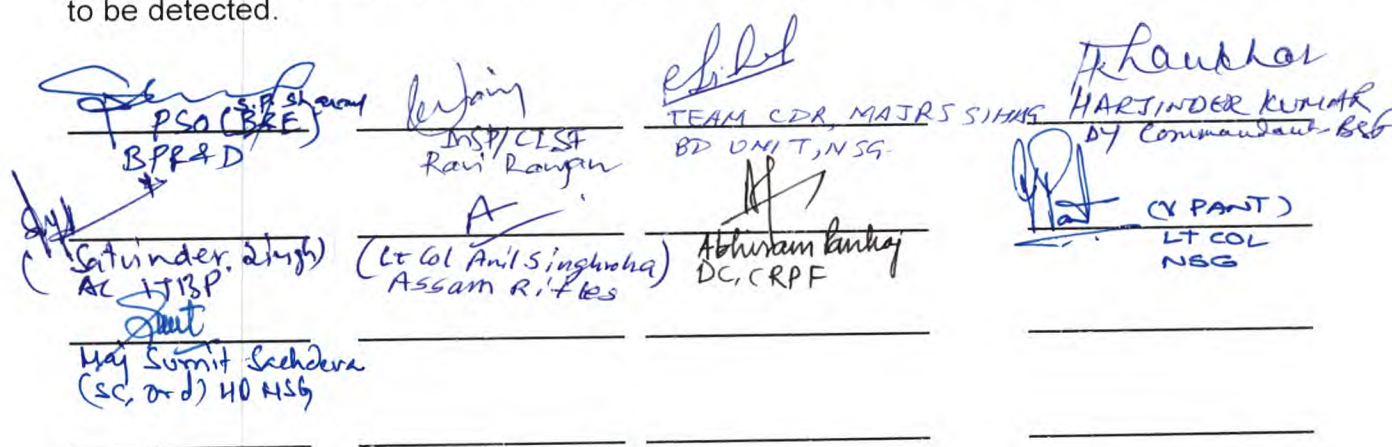 to be detected.
S.P. Sharay
PSO (BRE)
BPR&D
INSP/CISF
Ravi Ranjan
TEAM CDR, MAJ RS SIHAG
BD UNIT, NSG.
HARJINDER KUMAR
Dy Commandant BSF
(Satvinder Singh)
AC ITBP
(Lt Col Anil Singhroha)
Assam Rifles
Abhiram Pankaj
DC, CRPF
(Y PANT)
LT COL
NSG
Maj Sumit Sachdeva
(SC, Ord) HQ NSG